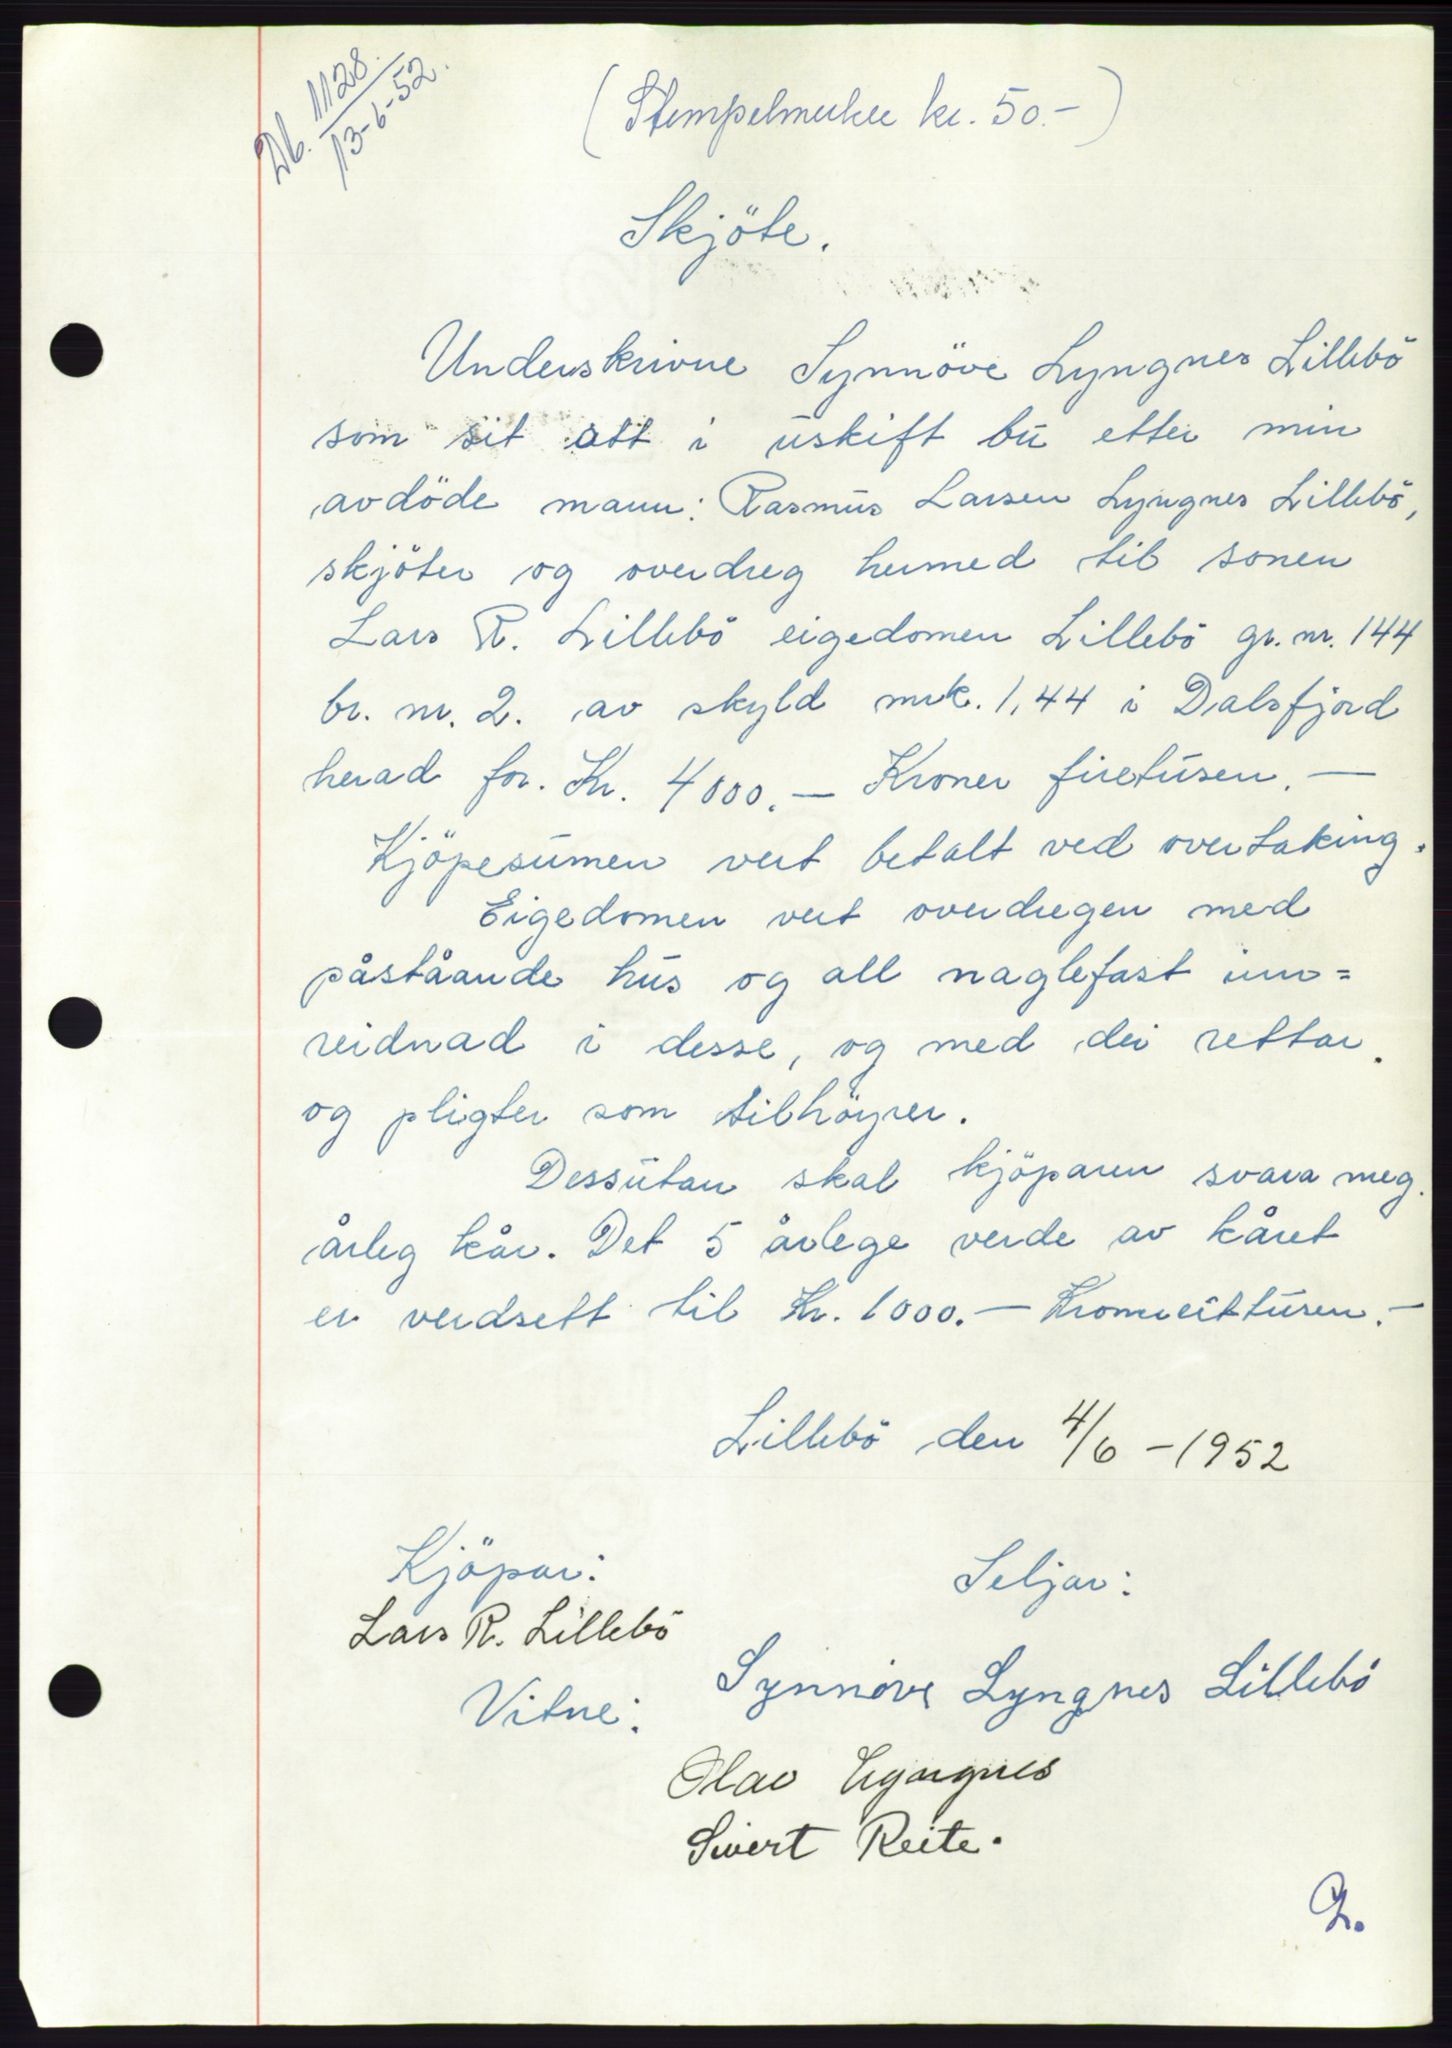 Db. 1128.
13-6-52.
(Stempelmerke kr. 50.-)
Skjöte.
Underskrivne Synnöve Lyngnes Lillebö
som sit att i uskift bu etter min
avdöde mann: Rasmus Larsen Lyngnes Lillebö,
skjöter og overdreg hermed til sonen
Lars R. Lillebö eigedomen Lillebö gr. nr. 144
br. nr. 2. av skyld mrk. 1,44 i Dalsfjord
herad for. Kr. 4000.— Kroner firetusen.—
Kjöpesumen vert betalt ved overtaking.
Eigedomen vert overdregen med
påståande hus og all naglefast inn=
reidnad i desse, og med dei rettar
og pligter som tilhöyrer.
Dessutan skal kjöparen svara meg
årleg kår. Det 5 årlege verde av kåret
er verdsett til Kr. 1000.— Kronereittusen.-
Lillebö den 4/6 -1952
Kjöpar: Seljar:
Lars R. Lillebö
Vitne: Synnöve Lyngnes Lillebö
Olav Lyngnes
Sivert Reite.